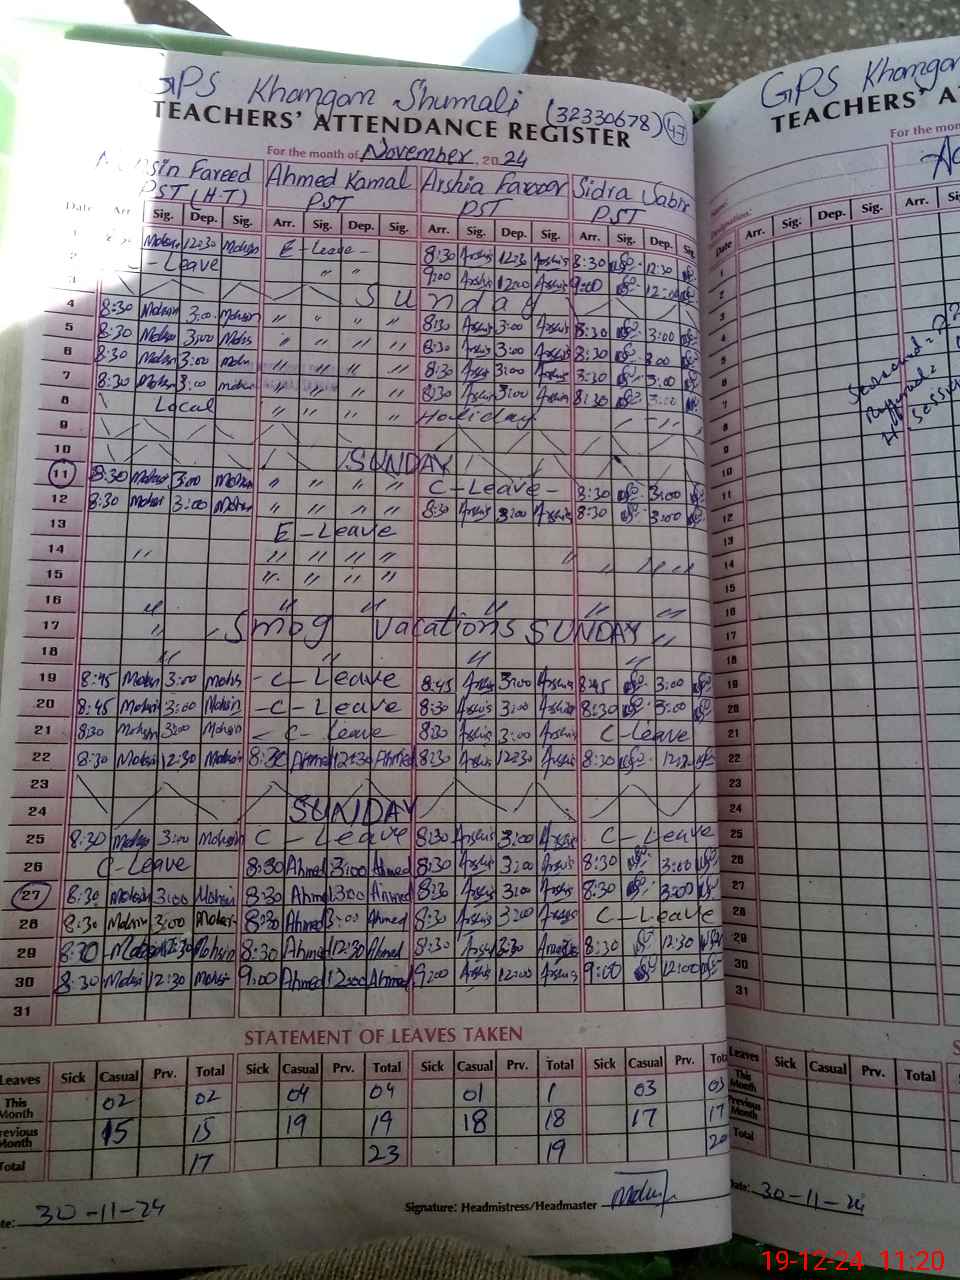 GPS Khangan Shumali (32330678) 47
TEACHERS' ATTENDANCE REGISTER
For the month of November, 2024
Mohsin Fareed Ahmed Kamal Arshia Farooq Sidra Sabir
PST (H-T) PST PST PST
Date Arr. Sig. Dep. Sig. Arr. Sig. Dep. Sig. Arr. Sig. Dep. Sig. Arr. Sig. Dep. Sig.
1 Mohsin 12:30 Mohsin E-Leave 8:30 Arshia 12:30 Arshia 8:30 12:30
2 C-Leave " " 9:00 Arshia 12:00 Arshia 9:00 12:00
3 Sunday
4 8:30 Mohsin 3:00 Mohsin " " " " 8:30 Arshia 3:00 Arshia 8:30 3:00
5 8:30 Mohsin 3:00 Mohsin " " " " 8:30 Arshia 3:00 Arshia 8:30 3:00
6 8:30 Mohsin 3:00 Mohsin " " " " 8:30 Arshia 3:00 Arshia 8:30 3:00
7 8:30 Mohsin 3:00 Mohsin " " " " 8:30 Arshia 3:00 Arshia 8:30 3:00
8 Local " " " " Holiday
9
10 SUNDAY
11 8:30 Mohsin 3:00 Mohsin " " " " C-Leave- 8:30 3:00
12 8:30 Mohsin 3:00 Mohsin " " " " 8:30 Arshia 3:00 Arshia 8:30 3:00
13 E-Leave
14 " " " " " "
15 " " " "
16 " " " " " "
17 " Smog Vacations SUNDAY "
18 " " " "
19 8:45 Mohsin 3:00 Mohsin -C-Leave 8:45 Arshia 3:00 Arshia 8:45 3:00
20 8:45 Mohsin 3:00 Mohsin -C-Leave 8:30 Arshia 3:00 Arshia 8:30 3:00
21 8:30 Mohsin 3:00 Mohsin C-Leave 8:30 Arshia 3:00 Arshia C-Leave
22 8:30 Mohsin 12:30 Mohsin 8:30 Ahmed 12:30 Ahmed 8:30 Arshia 12:30 Arshia 8:30
23
24 SUNDAY
25 8:30 Mohsin 3:00 Mohsin C-Leave 8:30 Arshia 3:00 Arshia C-Leave
26 C-Leave 8:30 Ahmed 3:00 Ahmed 8:30 Arshia 3:00 Arshia 8:30 3:00
27 8:30 Mohsin 3:00 Mohsin 8:30 Ahmed 3:00 Ahmed 8:30 Arshia 3:00 Arshia 8:30 3:00
28 8:30 Mohsin 3:00 Mohsin 8:30 Ahmed 3:00 Ahmed 8:30 Arshia 3:00 Arshia C-Leave
29 8:30 Mohsin 12:30 Mohsin 8:30 Ahmed 12:30 Ahmed 8:30 Arshia Arshia 8:30 12:30
30 8:30 Mohsin 12:30 Mohsin 9:00 Ahmed 12:00 Ahmed 9:00 Arshia 12:00 Arshia 9:00 12:00
31
STATEMENT OF LEAVES TAKEN
Leaves Sick Casual Prv. Total Sick Casual Prv. Total Sick Casual Prv. Total Sick Casual Prv. Total
This Month 02 02 04 04 01 1 03 03
Previous Month 15 15 19 19 18 18 17 17
Total 17 23 19 20
Date: 30-11-24
Signature: Headmistress/Headmaster
GPS Khangan
TEACHERS' A
For the mon
Name:
Designation:
Date Arr. Sig. Dep. Sig. Arr. Sig.
1
2
3
4
5
6
7
8
9
10
11
12
13
14
15
16
17
18
19
20
21
22
23
24
25
26
27
28
29
30
31
S
Leaves Sick Casual Prv. Total Sick Casual
This Month
Previous Month
Total
Date: 30-11-24
19-12-24 11:20